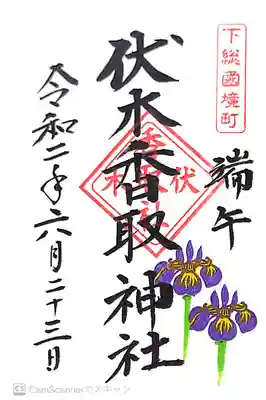 下総國境町
端午
伏木香取神社
令和二年六月二十三日
CamScannerでスキャン